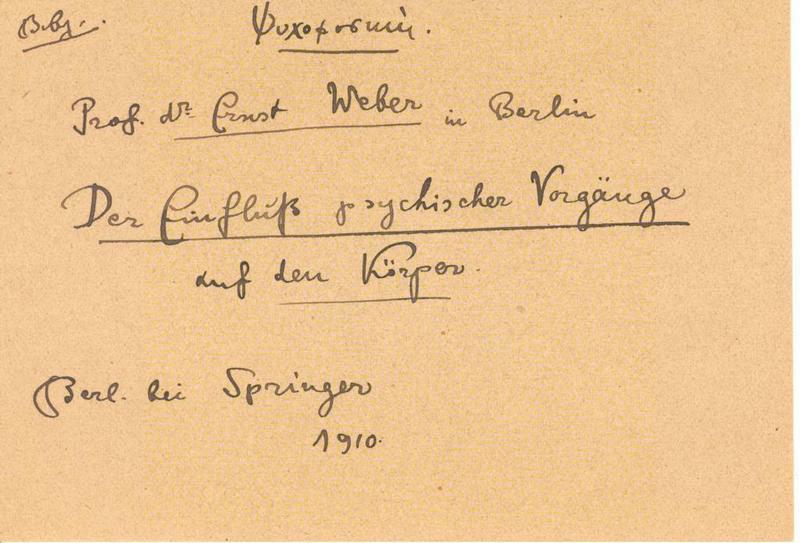 Prof. dr Ernst Weber in Berlin
Der Einfluß psychischer Vorgänge
auf den Körper.
Berl. bei Springer
1910.